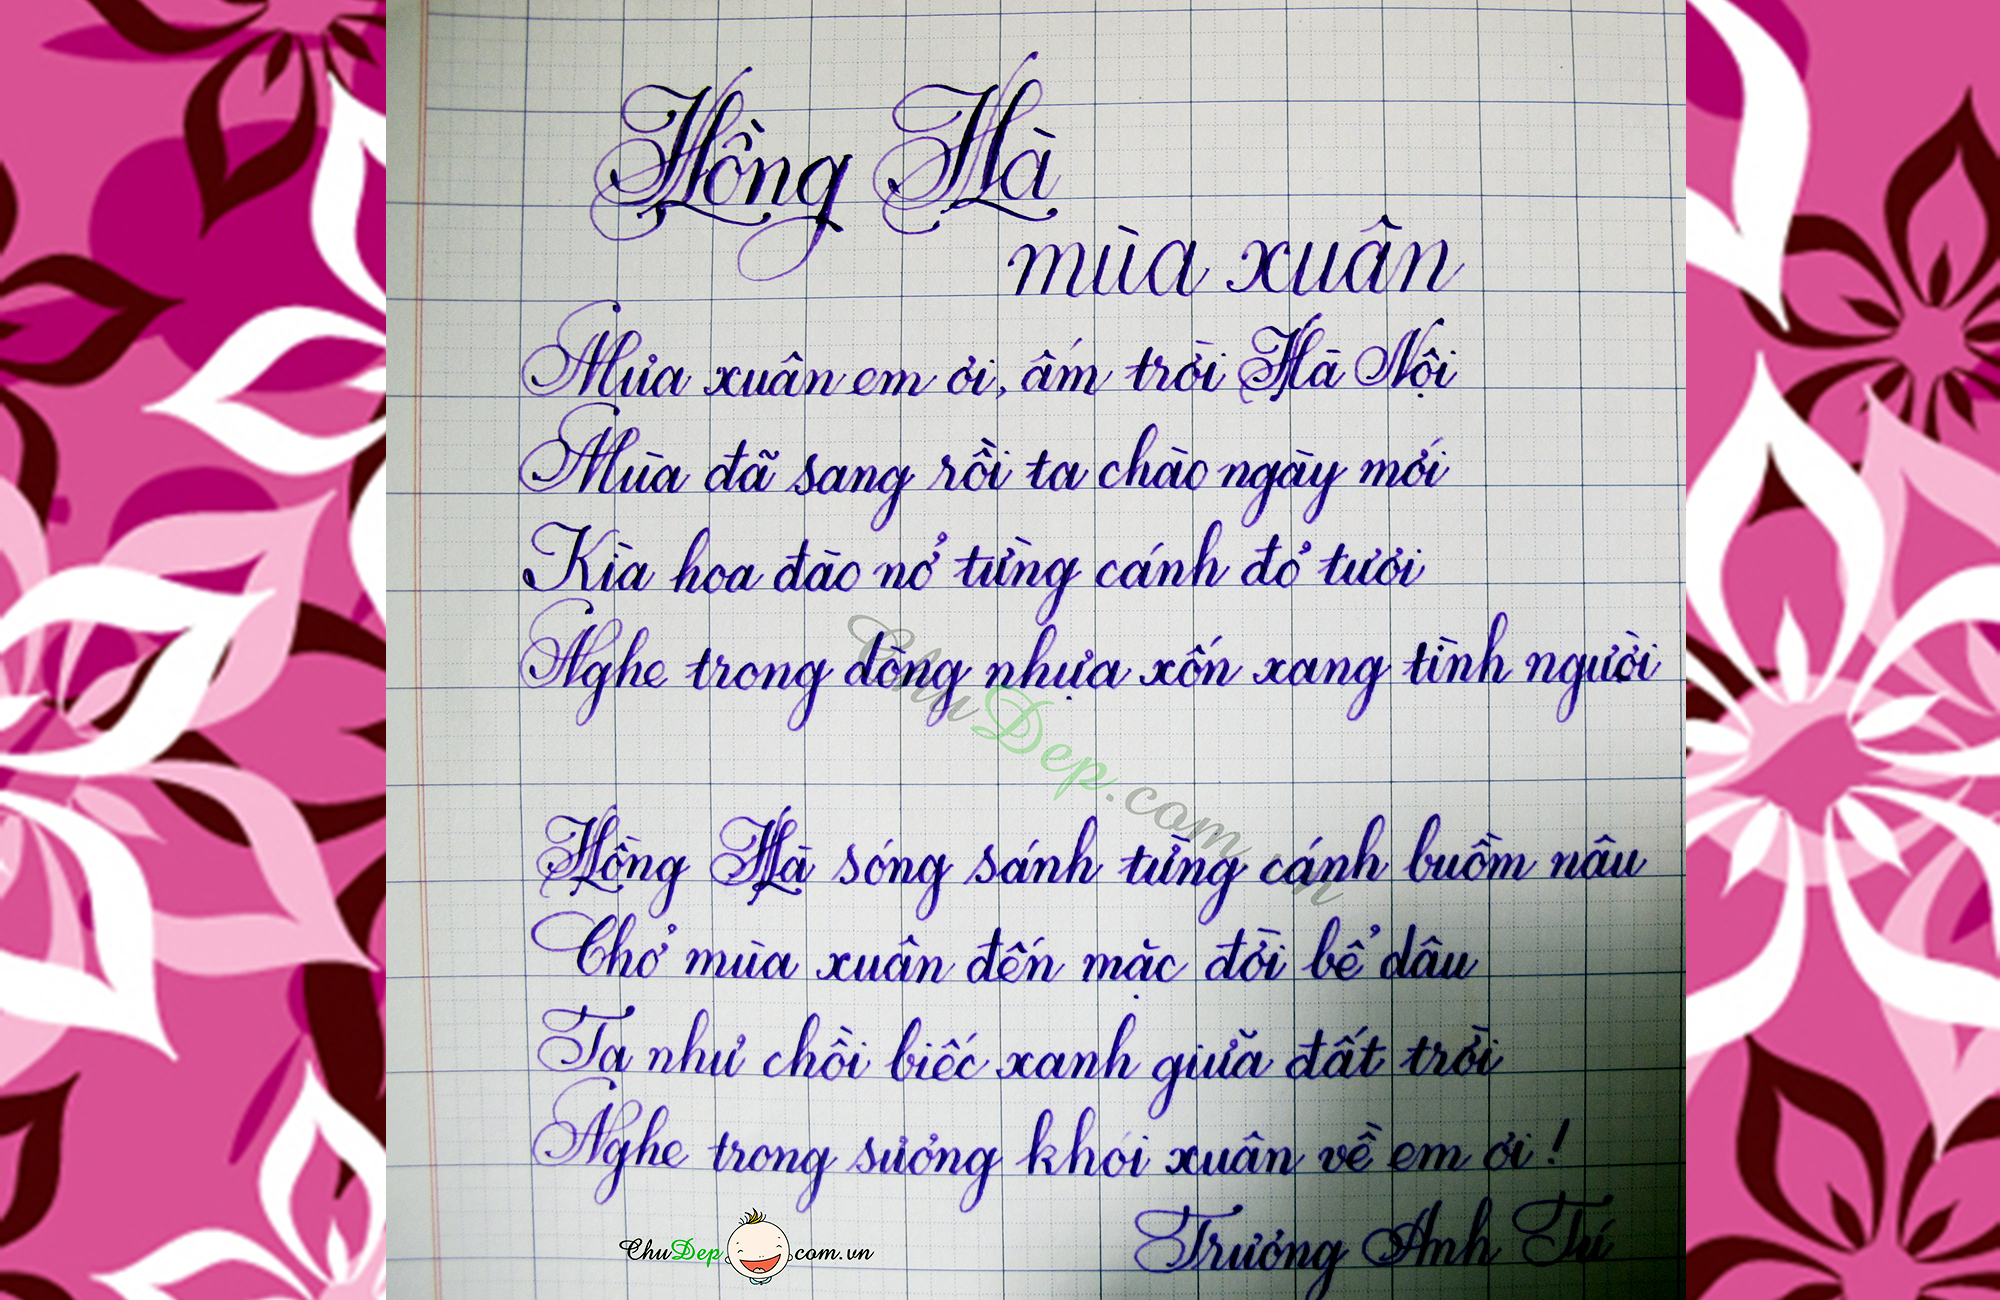 Hồng Hà
mùa xuân
Mưa xuân em ơi, ấm trời Hà Nội
Mùa đã sang rồi ta chào ngày mới
Kìa hoa đào nở từng cánh đỏ tươi
Nghe trong dòng nhựa xốn xang tình người
ChuDep.com.vn
Hồng Hà sóng sánh từng cánh buồm nâu
Chở mùa xuân đến mặc đời bể dâu
Ta như chồi biếc xanh giữa đất trời
Nghe trong sương khói xuân về em ơi!
Trương Anh Tú
ChuDep.com.vn